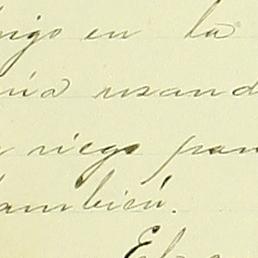 igo en la
nia usand
riego par
ambien.
El